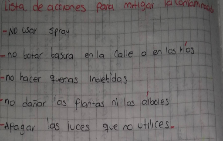 Lista de acciones para mitigar la contaminación
-No usar spray
-no botar basura en la calle o en los ríos
-no hacer quemas
-no dañar las plantas ni los arboles
-Apagar las luces que no utilices.